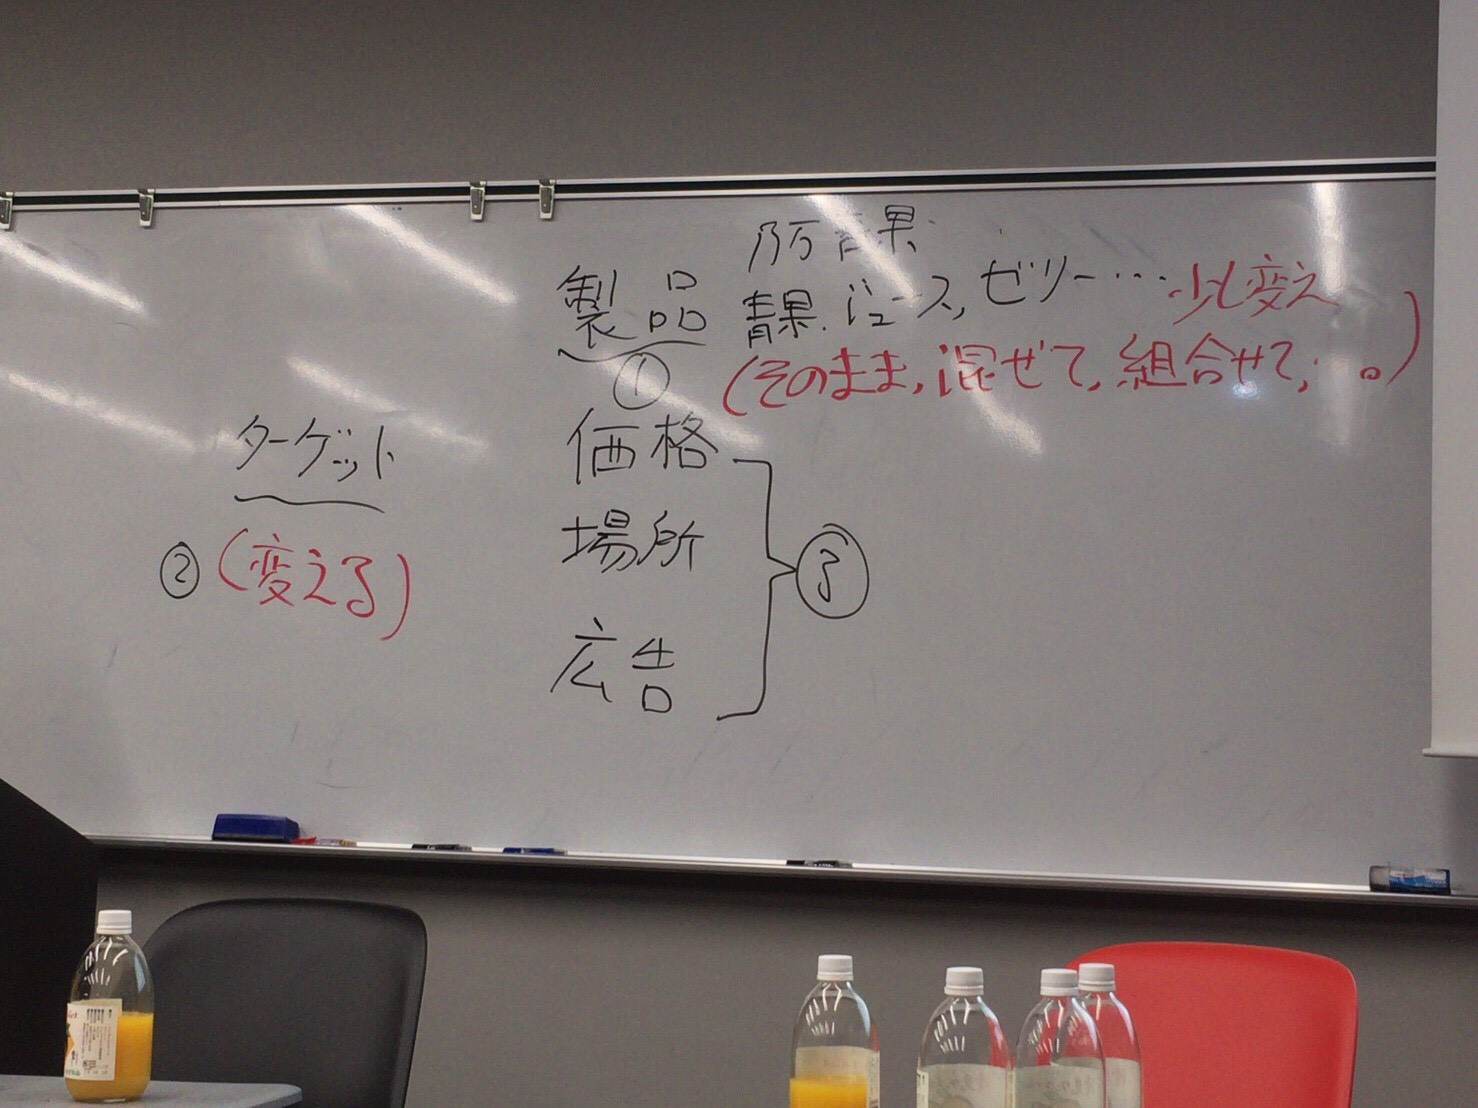 青果
製品 青果、ジュース、ゼリー… 少し変え
① (そのまま, 混ぜて, 組合せて, …。)
ターゲット
② (変える)
価格
場所
広告
③